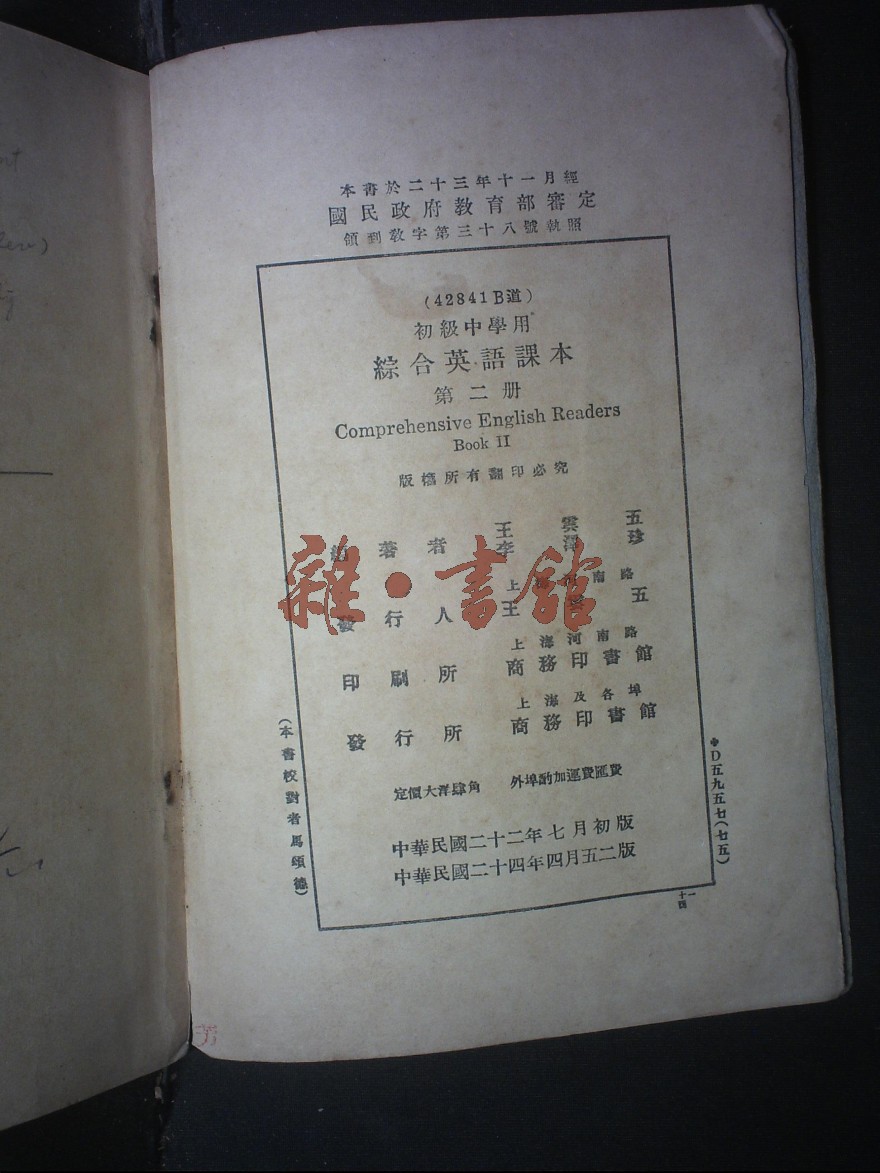 本書於二十三年十一月經
國民政府教育部審定
領到教字第三十八號執照
(42841B道)
初級中學用
綜合英語課本
第二册
Comprehensive English Readers
Book II
版權所有翻印必究
著者 王雲五
李澤珍
上海河南路
發行人 王雲五
上海河南路
印刷所 商務印書館
上海及各埠
發行所 商務印書館
定價大洋肆角 外埠酌加運費匯費
中華民國二十二年七月初版
中華民國二十四年四月五二版
(本書校對者馬頌德)
D五九五七(七五)
雜·書館
芳